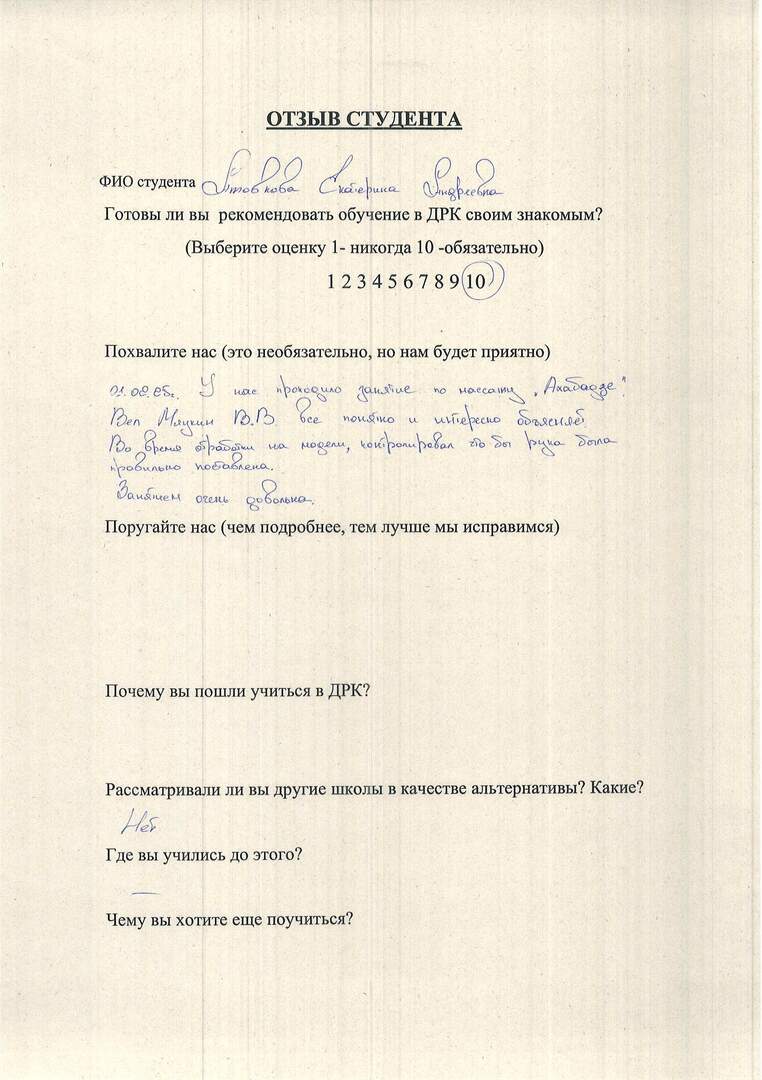 ОТЗЫВ СТУДЕНТА
ФИО студента Екатерина Андреевна
Готовы ли вы рекомендовать обучение в ДРК своим знакомым?
(Выберите оценку 1- никогда 10 -обязательно)
1 2 3 4 5 6 7 8 9 10
Похвалите нас (это необязательно, но нам будет приятно)
У нас проходило занятие по массажу „Ахабадзе".
Вел Мяукин В.В. все понятно и интересно объясняет.
Во время отработки на модели, контролировал что бы рука была
правильно поставлена.
Занятием очень довольна.
Поругайте нас (чем подробнее, тем лучше мы исправимся)
Почему вы пошли учиться в ДРК?
Рассматривали ли вы другие школы в качестве альтернативы? Какие?
Нет
Где вы учились до этого?
—
Чему вы хотите еще поучиться?